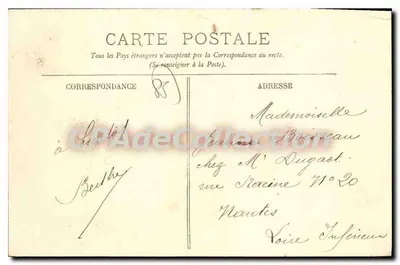 CARTE POSTALE
Tous les Pays étrangers n'acceptent pas la Correspondance au recto.
(Se renseigner à la Poste).
CORRESPONDANCE
ADRESSE
à
Berthe
Mademoiselle
chez Mr Dugast
rue Racine N° 20
Nantes
Loire Inférieure
CPADeCollection